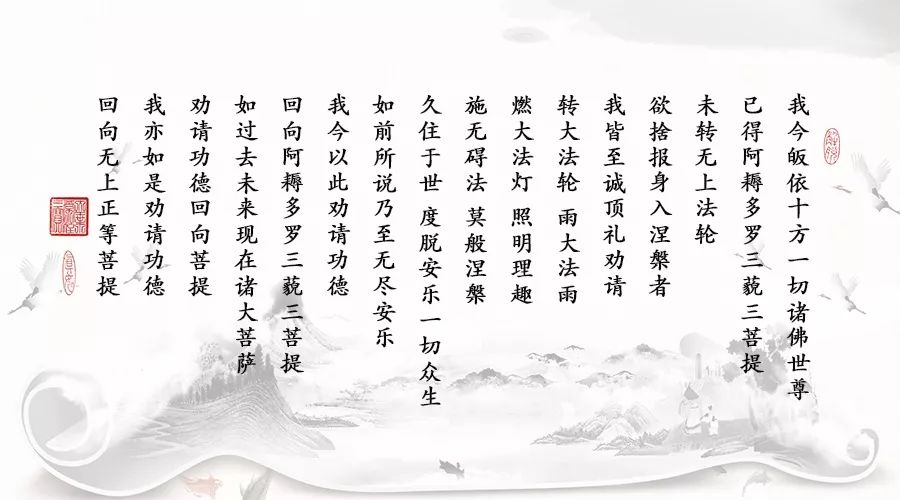 我今皈依十方一切诸佛世尊
已得阿耨多罗三藐三菩提
未转无上法轮
欲捨报身入涅槃者
我皆至诚顶礼劝请
转大法轮 雨大法雨
燃大法灯 照明理趣
施无碍法 莫般涅槃
久住于世 度脱安乐一切众生
如前所说乃至无尽安乐
我今以此劝请功德
回向阿耨多罗三藐三菩提
如过去未来现在诸大菩萨
劝请功德回向菩提
我亦如是劝请功德
回向无上正等菩提